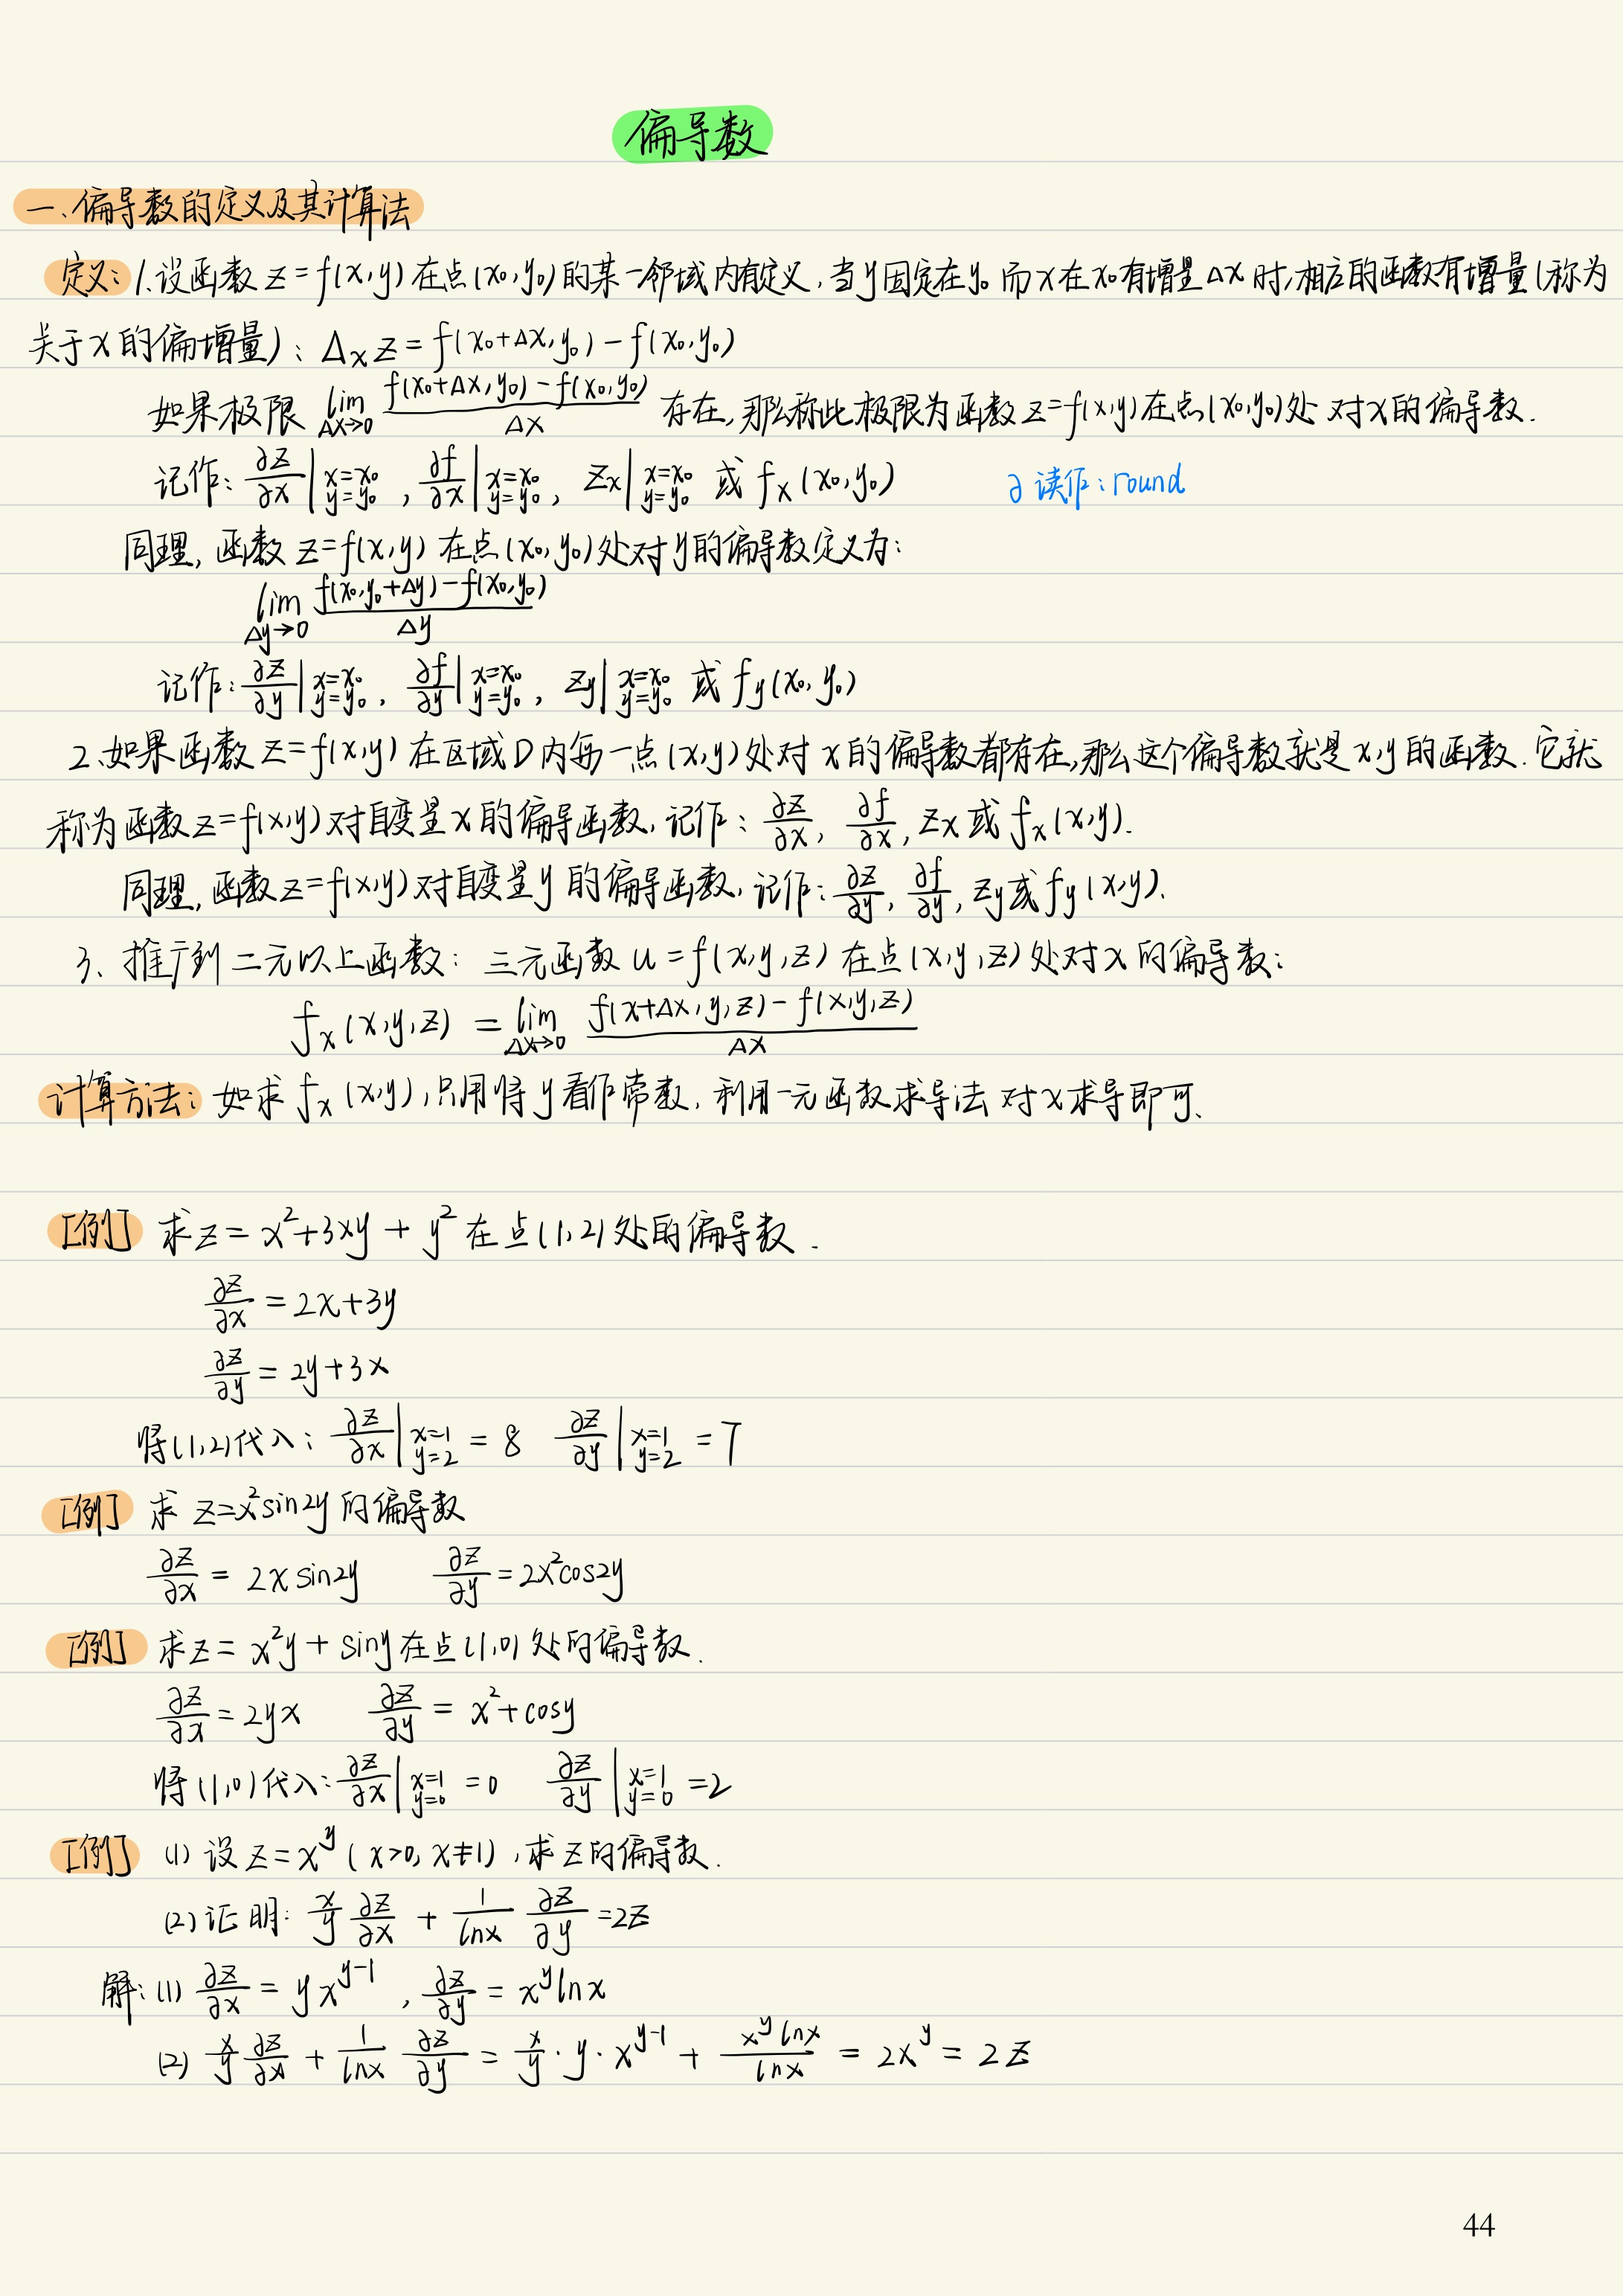 偏导数
一、偏导数的定义及其计算法
定义：1.设函数 z=f(x,y) 在点(x₀,y₀)的某一邻域内有定义,当y固定在y₀而x在x₀有增量Δx时,相应的函数有增量(称为
关于x的偏增量)：Δₓz=f(x₀+Δx,y₀)-f(x₀,y₀)
如果极限 lim_{Δx→0} \frac{f(x₀+Δx,y₀)-f(x₀,y₀)}{Δx} 存在,那么称此极限为函数z=f(x,y)在点(x₀,y₀)处 对x的偏导数.
记作：\frac{∂z}{∂x}|_{x=x₀, y=y₀} , \frac{∂f}{∂x}|_{x=x₀, y=y₀} , zₓ|_{x=x₀, y=y₀} 或 fₓ(x₀,y₀) ∂ 读作：round
同理, 函数 z=f(x,y) 在点(x₀,y₀)处对y的偏导数定义为：
lim_{Δy→0} \frac{f(x₀,y₀+Δy)-f(x₀,y₀)}{Δy}
记作：\frac{∂z}{∂y}|_{x=x₀, y=y₀} , \frac{∂f}{∂y}|_{x=x₀, y=y₀} , z_y|_{x=x₀, y=y₀} 或 f_y(x₀,y₀)
2.如果函数 z=f(x,y) 在区域D内每一点(x,y)处对 x的偏导数都存在,那么这个偏导数就是x,y的函数.它就
称为函数z=f(x,y)对自变量x的偏导函数,记作：\frac{∂z}{∂x}, \frac{∂f}{∂x}, zₓ 或 fₓ(x,y).
同理,函数z=f(x,y)对自变量y的偏导函数,记作：\frac{∂z}{∂y}, \frac{∂f}{∂y}, z_y或 f_y(x,y).
3、推广到二元以上函数：三元函数 u=f(x,y,z) 在点(x,y,z)处对x的偏导数：
fₓ(x,y,z) = lim_{Δx→0} \frac{f(x+Δx,y,z)-f(x,y,z)}{Δx}
计算方法：如求 fₓ(x,y),只用将y看作常数,利用一元函数求导法 对x求导即可.
[例] 求z=x²+3xy+y² 在点(1,2)处的偏导数.
\frac{∂z}{∂x}=2x+3y
\frac{∂z}{∂y}=2y+3x
将(1,2)代入：\frac{∂z}{∂x}|_{x=1, y=2}=8 \frac{∂z}{∂y}|_{x=1, y=2}=7
[例] 求 z=x²sin2y的偏导数
\frac{∂z}{∂x}=2xsin2y \frac{∂z}{∂y}=2x²cos2y
[例] 求z=x²y+siny在点(1,0)处的偏导数.
\frac{∂z}{∂x}=2yx \frac{∂z}{∂y}=x²+cosy
将(1,0)代入：\frac{∂z}{∂x}|_{x=1, y=0}=0 \frac{∂z}{∂y}|_{x=1, y=0}=2
[例] (1) 设z=x^y (x>0,x≠1),求z的偏导数.
(2)证明：\frac{x}{y}\frac{∂z}{∂x}+\frac{1}{lnx}\frac{∂z}{∂y}=2z
解：(1) \frac{∂z}{∂x}=yx^{y-1} , \frac{∂z}{∂y}=x^y lnx
(2) \frac{x}{y}\frac{∂z}{∂x}+\frac{1}{lnx}\frac{∂z}{∂y}=\frac{x}{y}·y·x^{y-1}+\frac{x^y lnx}{lnx}=2x^y=2z
44